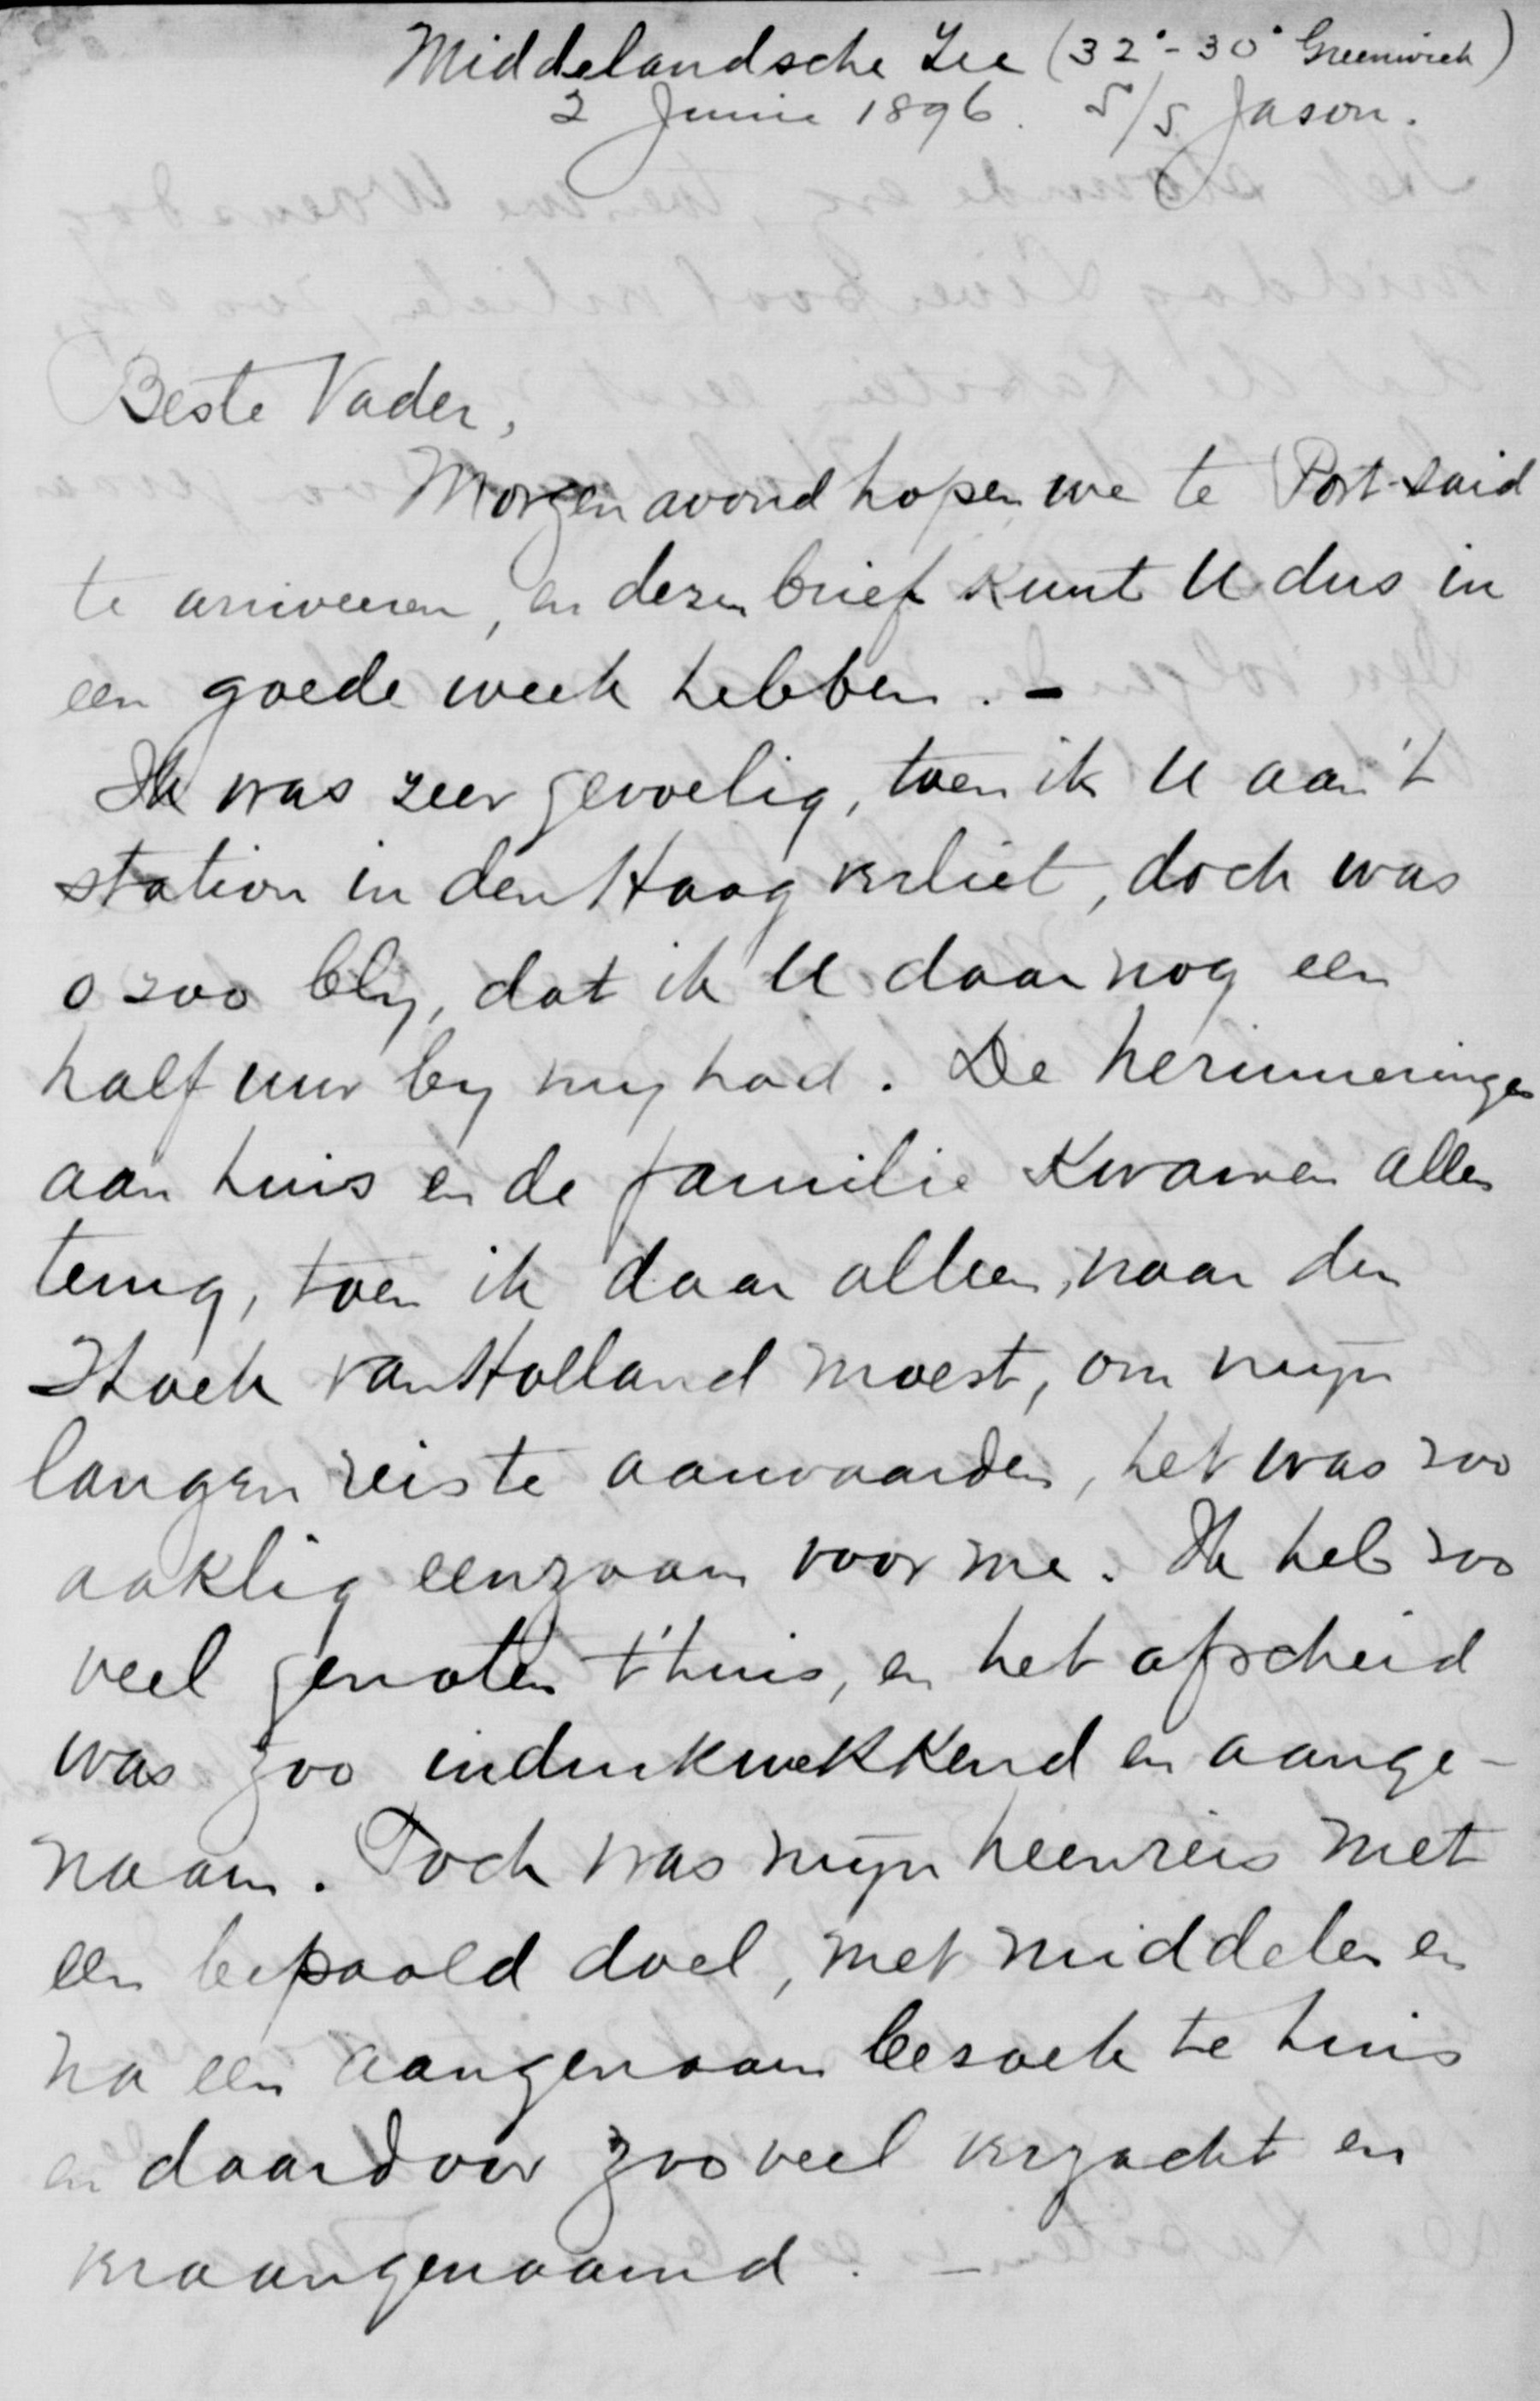 Middelandsche Zee (32° - 30° Greenwich)
2 Junie 1896. S/S Jason.
Beste Vader,
Morgen avond hopen we te Port-Said
te arriveeren, en dezen brief kunt U dus in
een goede week hebben. -
Ik was zeer gevoelig, toen ik U aan 't
station in den Haag verliet, doch was
o zoo bly, dat ik U daar nog een
half uur by my had. De herinneringen
aan huis en de familie kwamen allen
terug, toen ik daar alleen, naar den
Hoek van Holland moest, om mijn
langen reis te aanvaarden, het was zoo
aaklig eenzaam voor me. Ik heb zoo
veel genoten t'huis, en het afscheid
was zoo indrukwekkend en aange-
naam. Toch was mijn heenreis met
een bepaald doel, met middelen en
na een aangenaam bezoek te huis
en daardoor zooveel verzacht en
veraangenaamd. -